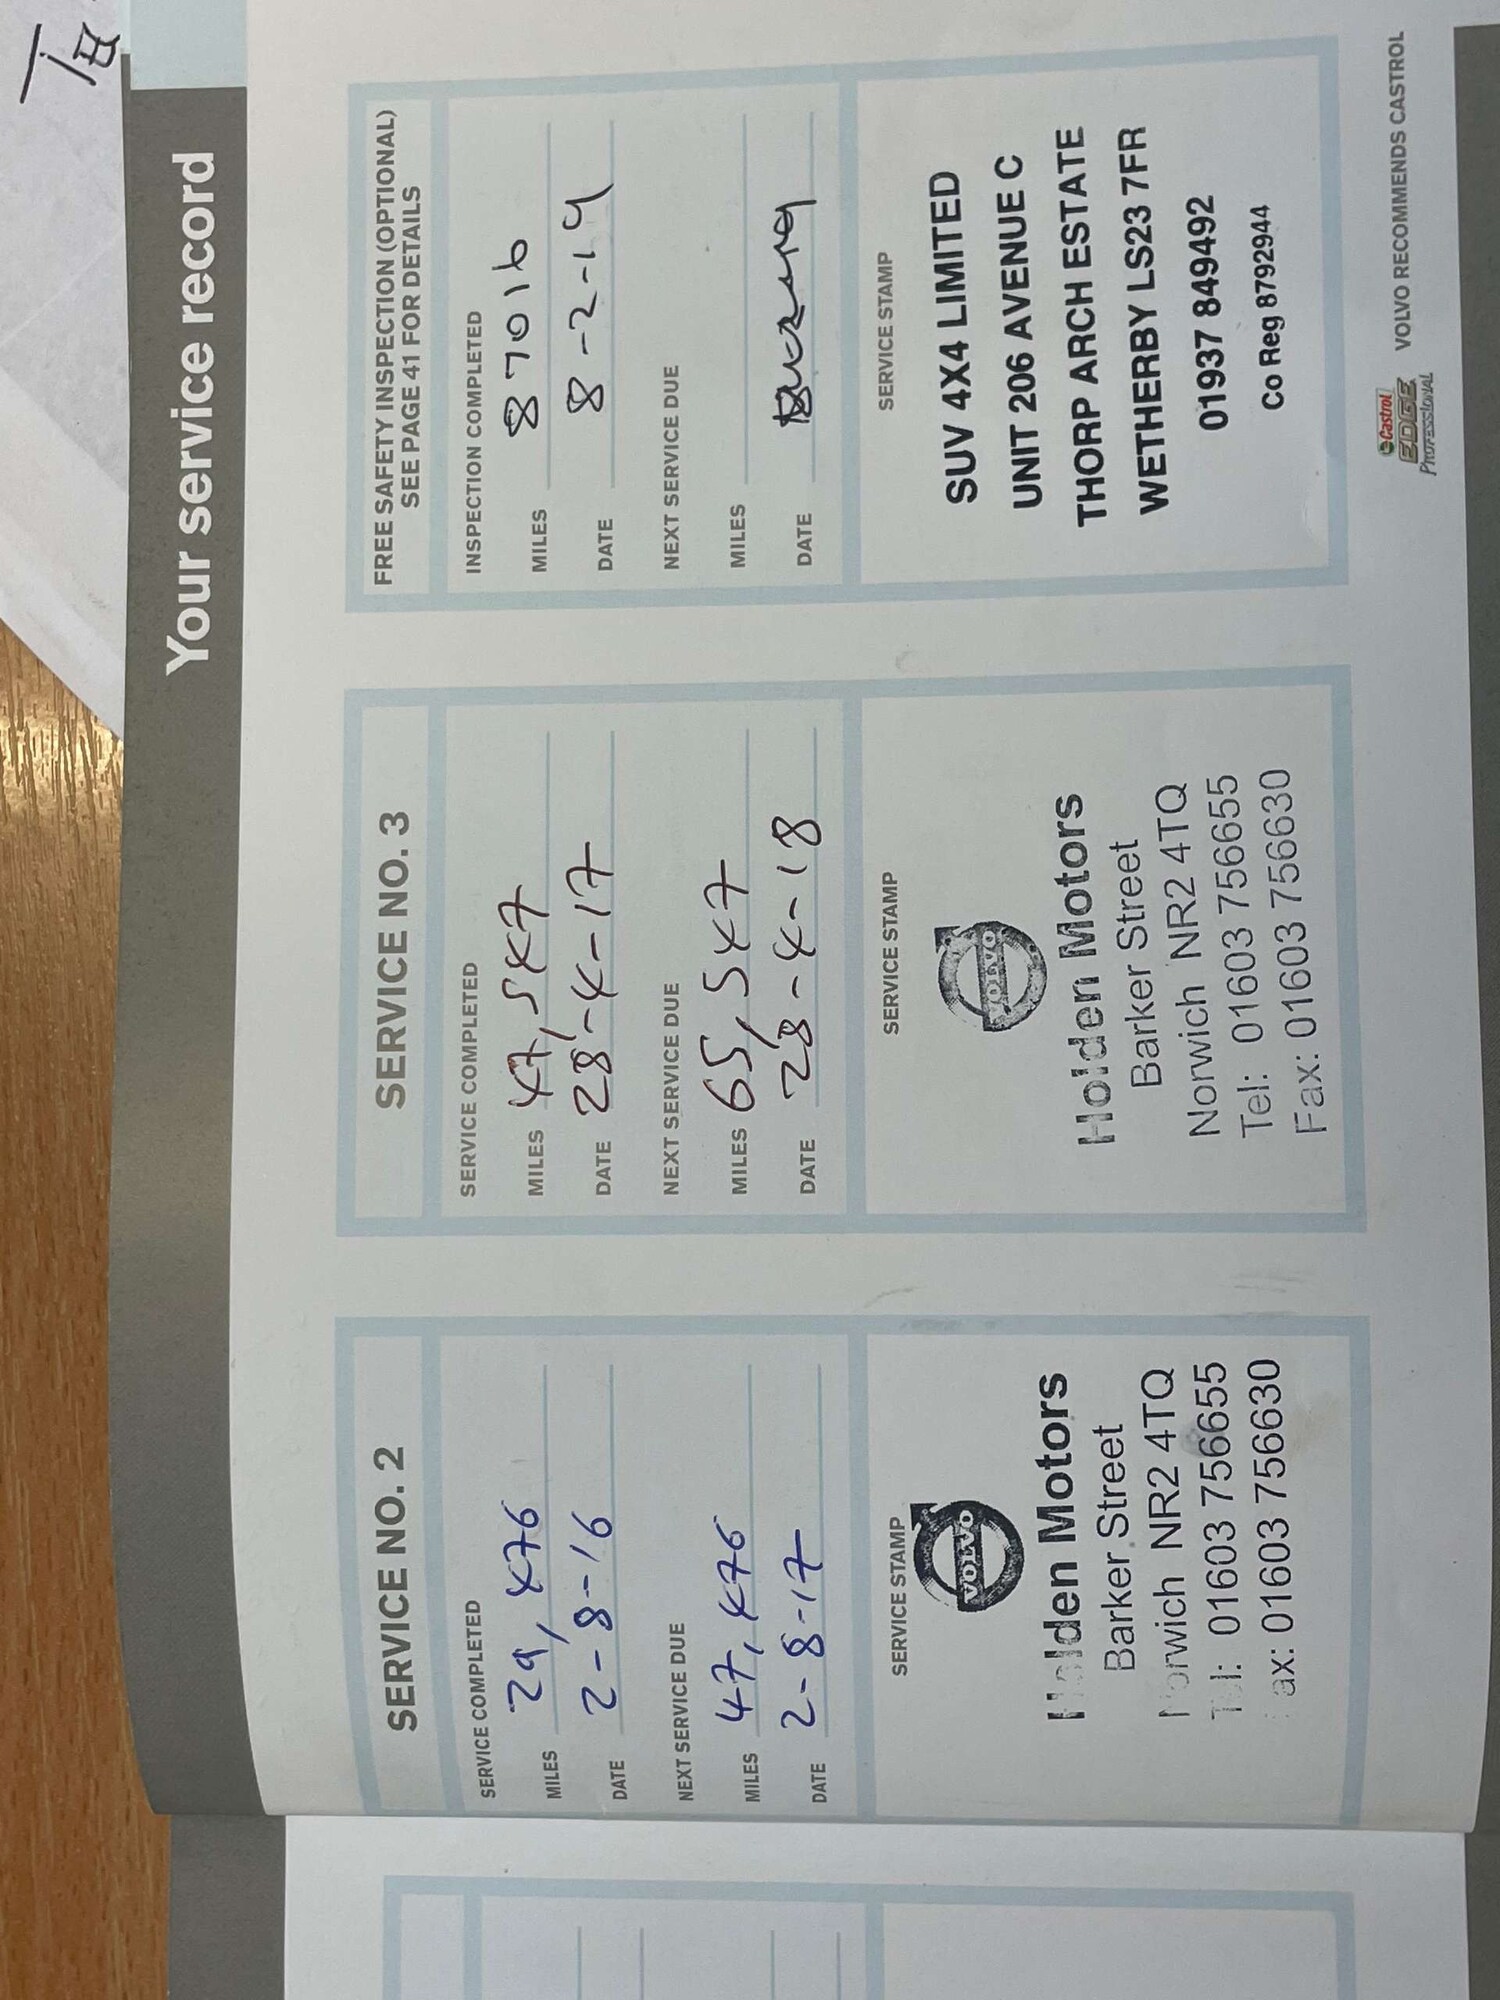 Your service record
SERVICE NO. 2
SERVICE COMPLETED
MILES 29,476
DATE 2-8-16
NEXT SERVICE DUE
MILES 47,476
DATE 2-8-17
SERVICE STAMP
VOLVO
Holden Motors
Barker Street
Norwich NR2 4TQ
Tel: 01603 756655
Fax: 01603 756630
SERVICE NO. 3
SERVICE COMPLETED
MILES 47,547
DATE 28-4-17
NEXT SERVICE DUE
MILES 65,547
DATE 28-4-18
SERVICE STAMP
VOLVO
Holden Motors
Barker Street
Norwich NR2 4TQ
Tel: 01603 756655
Fax: 01603 756630
FREE SAFETY INSPECTION (OPTIONAL)
SEE PAGE 41 FOR DETAILS
INSPECTION COMPLETED
MILES 87016
DATE 8-2-19
NEXT SERVICE DUE
MILES
DATE
SERVICE STAMP
SUV 4X4 LIMITED
UNIT 206 AVENUE C
THORP ARCH ESTATE
WETHERBY LS23 7FR
01937 849492
Co Reg 8792944
Castrol
EDGE
PROFESSIONAL
VOLVO RECOMMENDS CASTROL